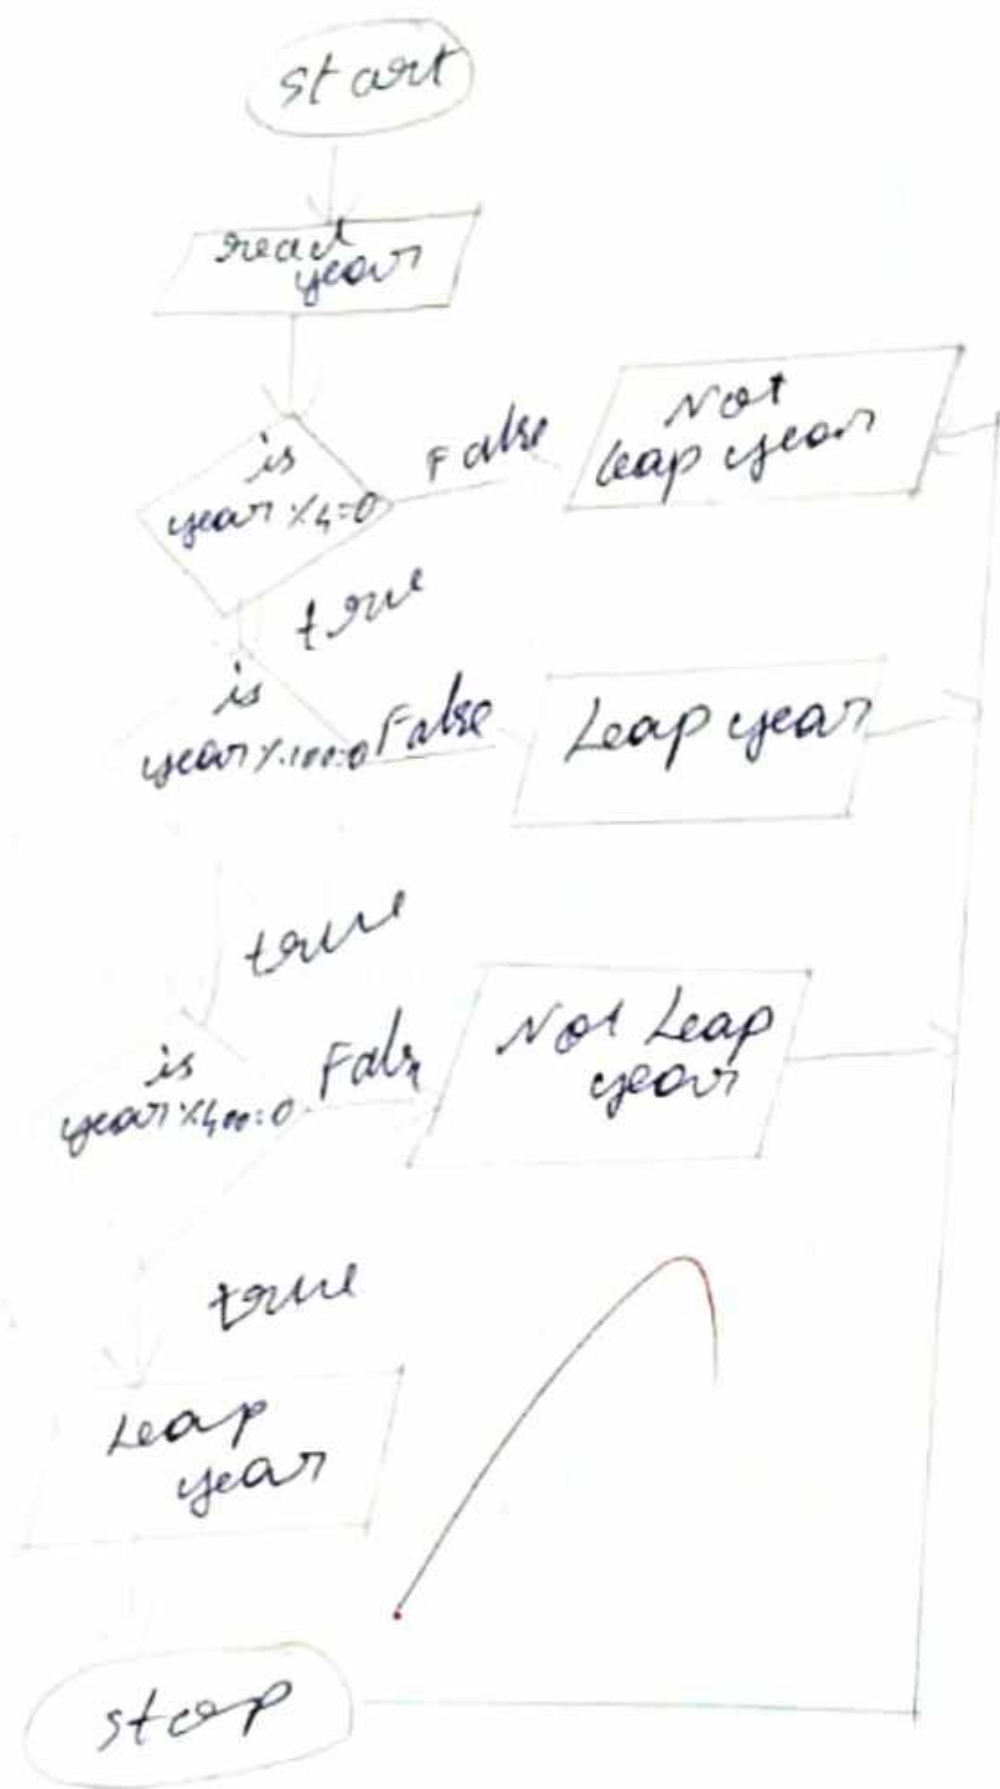 start
read
year
is
year % 4 = 0
False
Not
Leap year
true
is
year % 100 = 0
False
Leap year
true
is
year % 400 = 0
False
Not Leap
year
true
Leap
year
stop